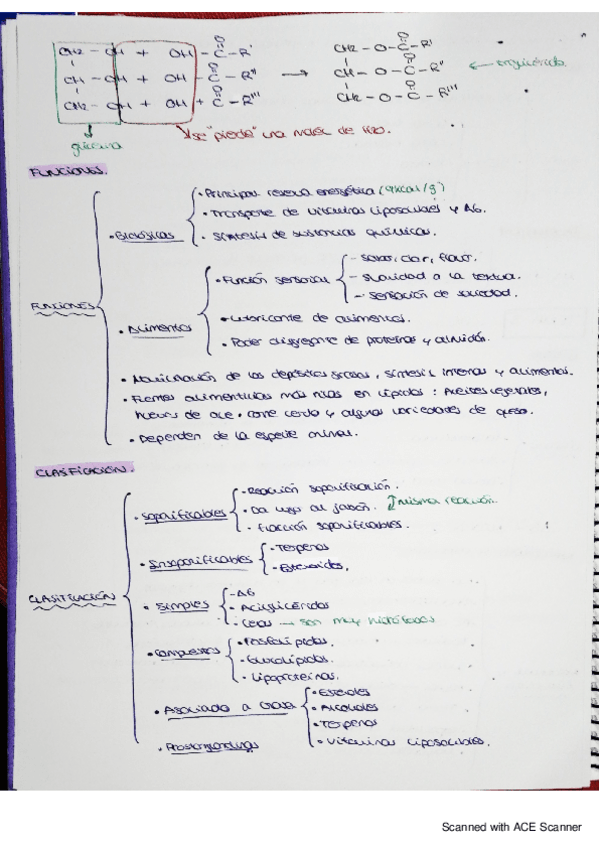 CH2 - OH + OH - C - R'
CH - OH + OH - C - R''
CH2 - OH + OH + C - R'''
O
→
CH2 - O - C - R'
CH - O - C - R''
CH2 - O - C - R'''
glicerina
se "pierde" una molec de H2O.
FUNCIONES.
FUNCIONES
• Biológicas
• Principal reserva energética (9kcal/g)
• Transporte de vitaminas liposolubles y AG.
• Síntesis de sustancias químicas.
• Alimentos
• Función sensorial
- sabor, olor, flavor.
- suavidad a la textura.
- sensación de saciedad.
• Lubricante de alimentos.
• Poder disgregante de proteínas y almidón.
• Movilización de los depósitos grasos, síntesis interna y alimentos.
• Fuentes alimenticias más ricas en lípidos: Aceites vegetales,
huevos de ave, carne cerdo y algunas variedades de queso.
• Dependen de la especie animal.
CLASIFICACIÓN.
CLASIFICACIÓN
• Saponificables
- Reacción saponificación.
• Da lugar al jabón.
misma reacción.
• Fracción saponificables.
• Insaponificables
- Terpenos
- Esteroides.
• Simples
- AG
- Acilglicéridos
- Ceras → son muy hidrófobos
• Compuestos
• Fosfolípidos.
- Glucolípidos.
• Lipoproteínas.
• Asociado a Grasa
• Esteroles
• Alcoholes
• Terpenos
• Vitaminas liposolubles.
• Prostaglandinas
Scanned with ACE Scanner